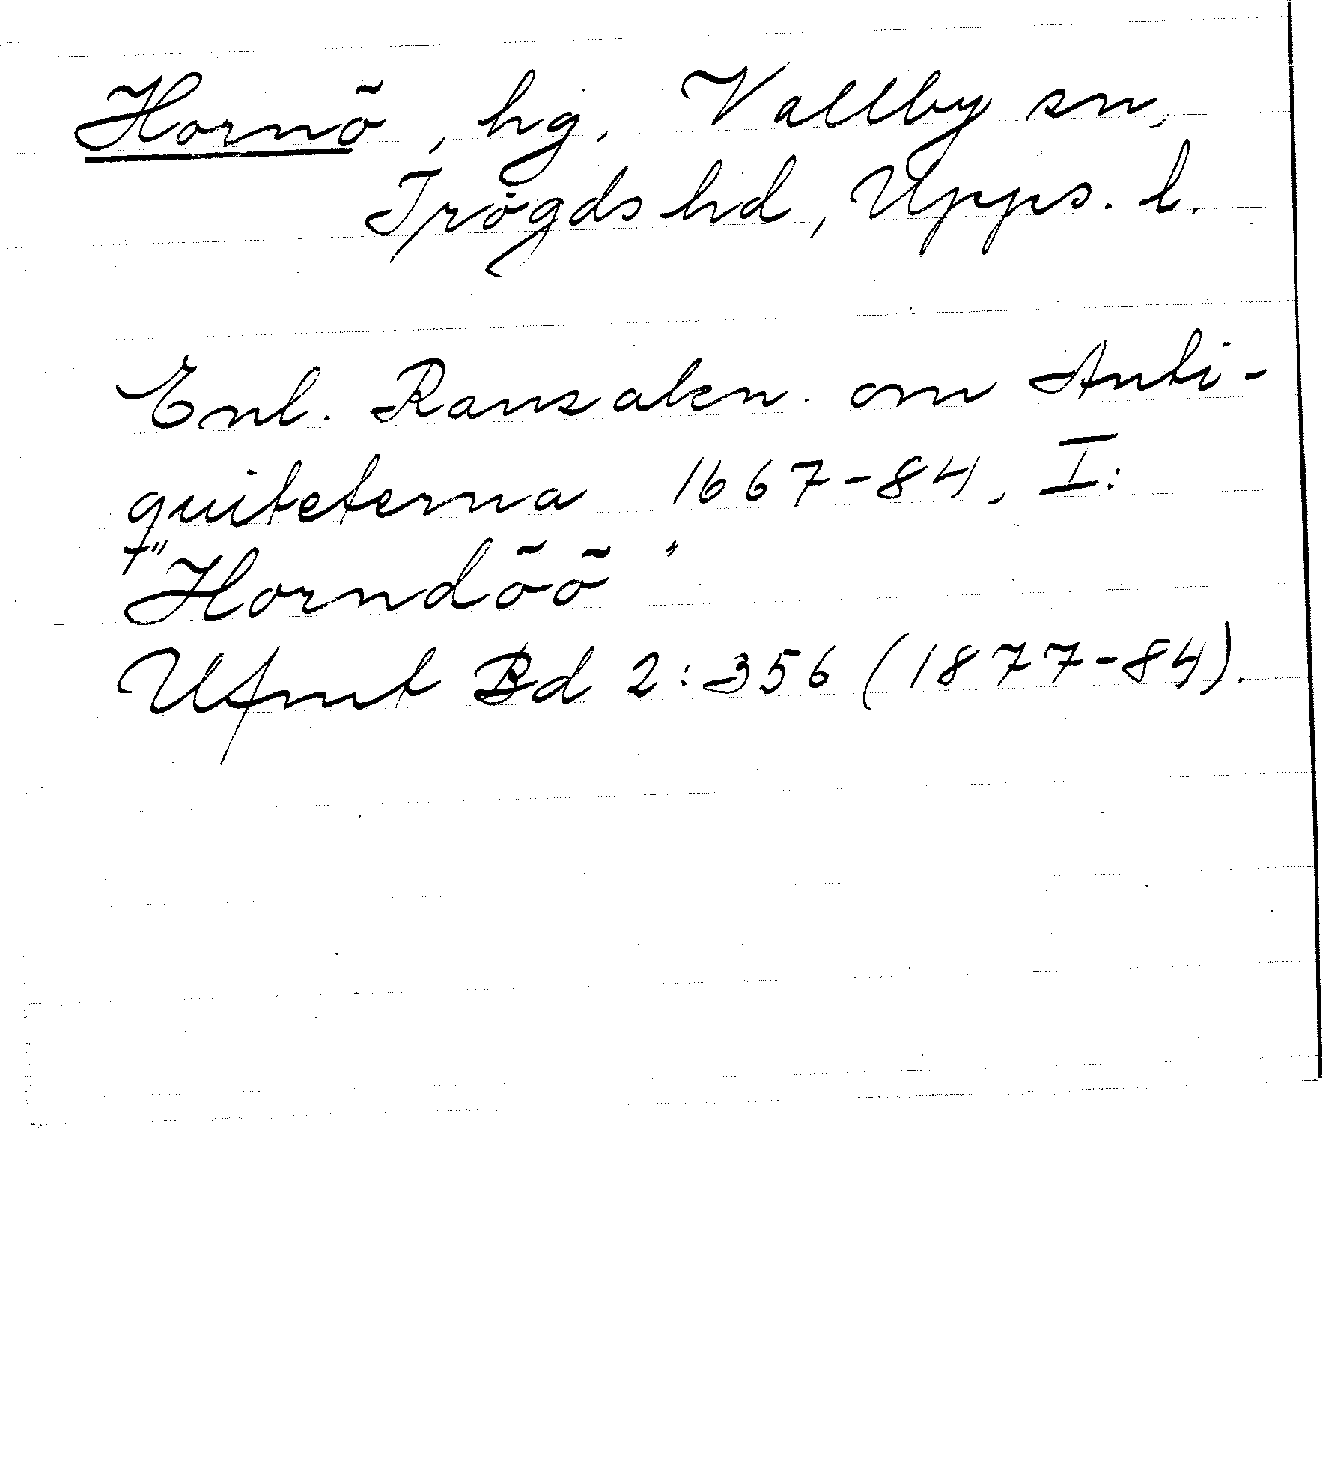 Hornö, hg. Vallby sn,
Trögds hd, Upps. l.
Enl. Ransaken. om Anti-
quiteterna 1667-84, I:
"Horndöö"
Ufmt Bd 2:356 (1877-84).